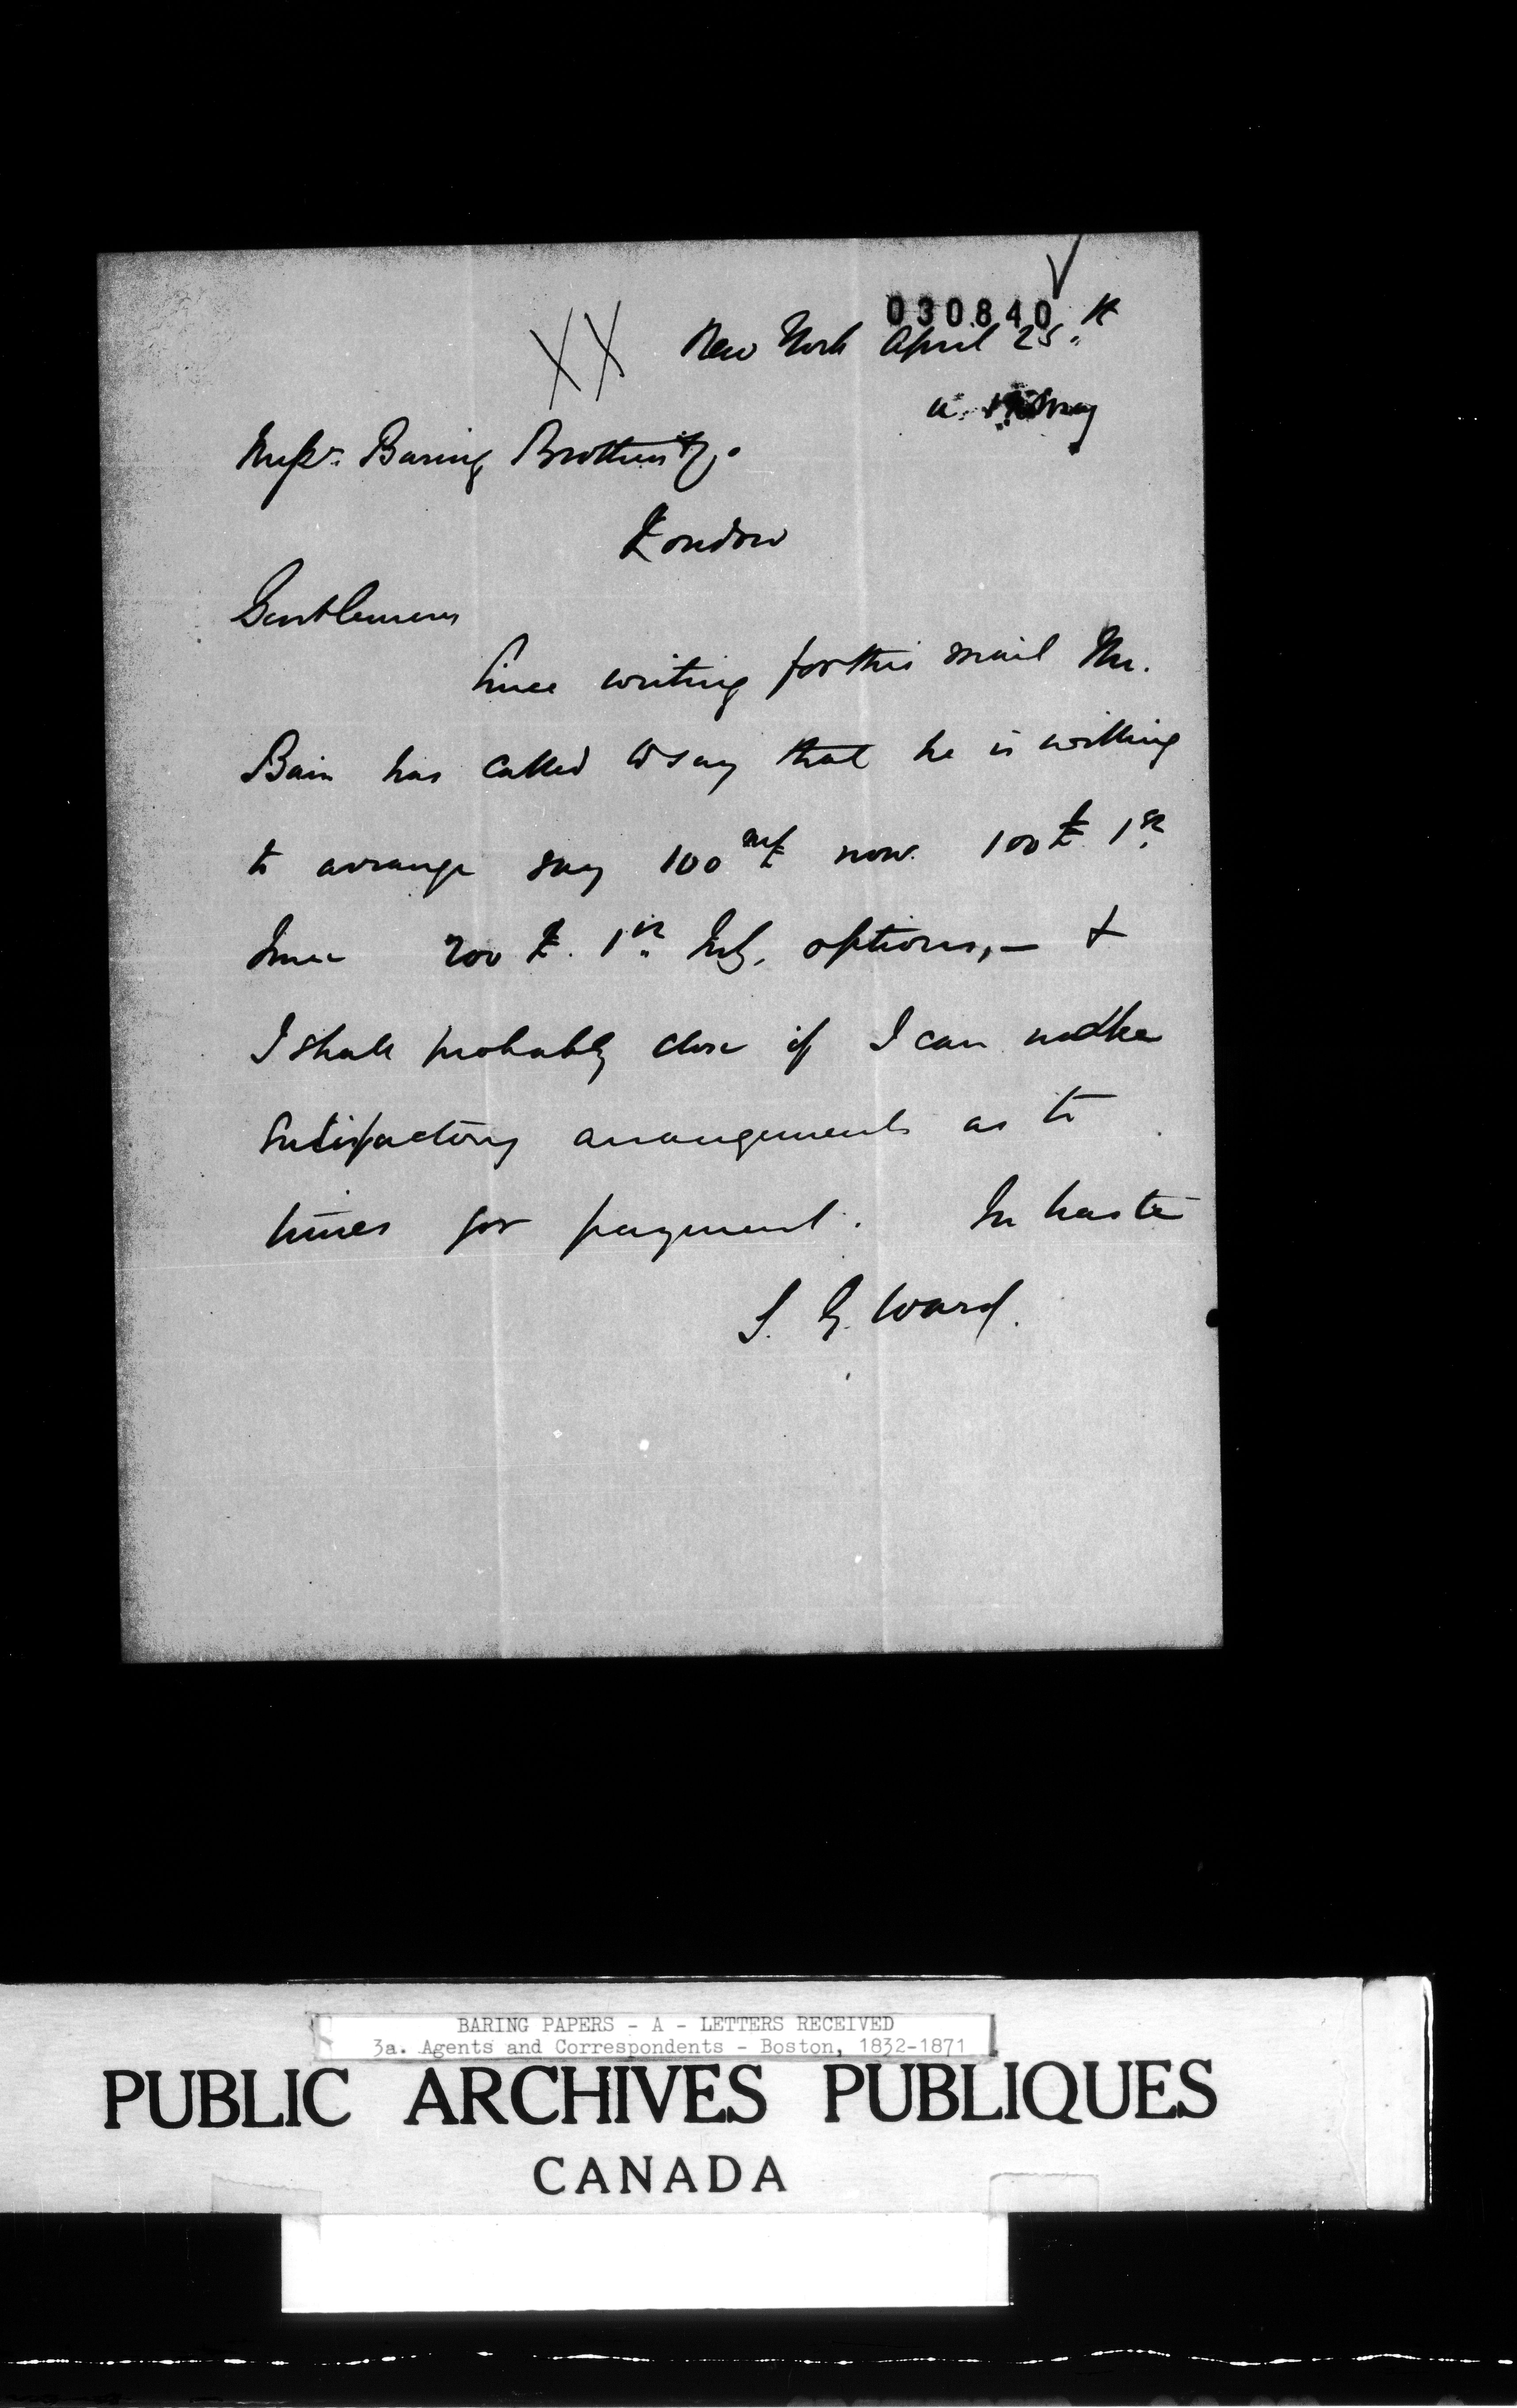 030840
XX New York April 25th
Messrs. Baring Brothers & Co.
London
Gentlemen
Since writing for this mail Mr.
Bain has called to say that he is willing
to arrange say 100 now. 100 1st
June 200 1st July, options, — &
I shall probably close if I can make
satisfactory arrangements as to
times for payment. In haste
S. G. Ward.
BARING PAPERS - A - LETTERS RECEIVED
3a. Agents and Correspondents - Boston, 1832-1871
PUBLIC ARCHIVES PUBLIQUES
CANADA